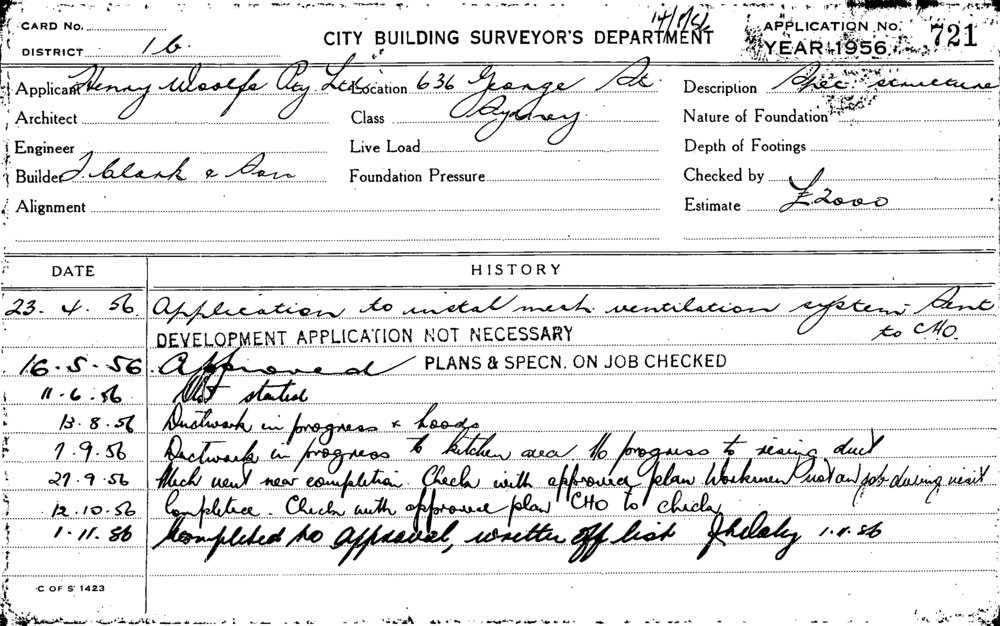 CARD No.
14/5/56
APPLICATION No. 721
DISTRICT 16
CITY BUILDING SURVEYOR'S DEPARTMENT
YEAR 1956
Applicant Henry Woolfe Pty. Ltd. Location 636 George St. Description Spec. structure
Architect Class Sydney Nature of Foundation
Engineer Live Load Depth of Footings
Builder J Clark & Son Foundation Pressure Checked by
Alignment Estimate £2000
DATE HISTORY
23. 4. 56 Application to instal mech. ventilation system - Sent
to CHO.
DEVELOPMENT APPLICATION NOT NECESSARY
16. 5. 56 Approved PLANS & SPECN. ON JOB CHECKED
11. 6. 56 Not started
13. 8. 56 Ductwork in progress & hoods
7. 9. 56 Ductwork in progress to kitchen area No progress to rising duct
27. 9. 56 Mech vent near completion. Check with approved plan Workmen not on job during visit
12. 10. 56 Completed. Check with approved plan CHO to check
1. 11. 56 Completed to approval, written off list 1. 11. 56
C OF S' 1423